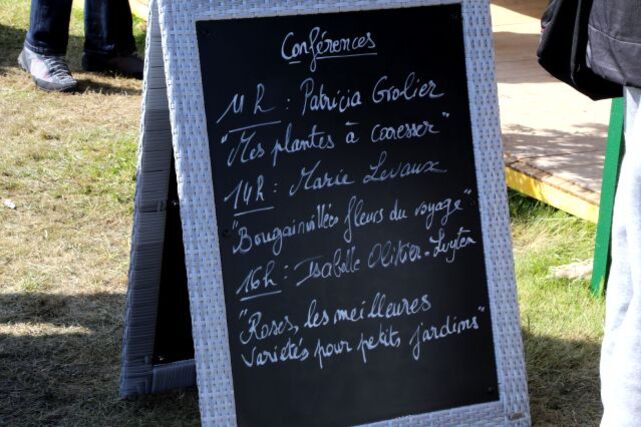 Conférences
11h : Patricia Grolier
"Mes plantes à caresser"
14h : Marie Levaux
"Bougainvillées fleurs du voyage"
16h : Isabelle Olivier-Luyten
"Roses, les meilleures
variétés pour petits jardins"